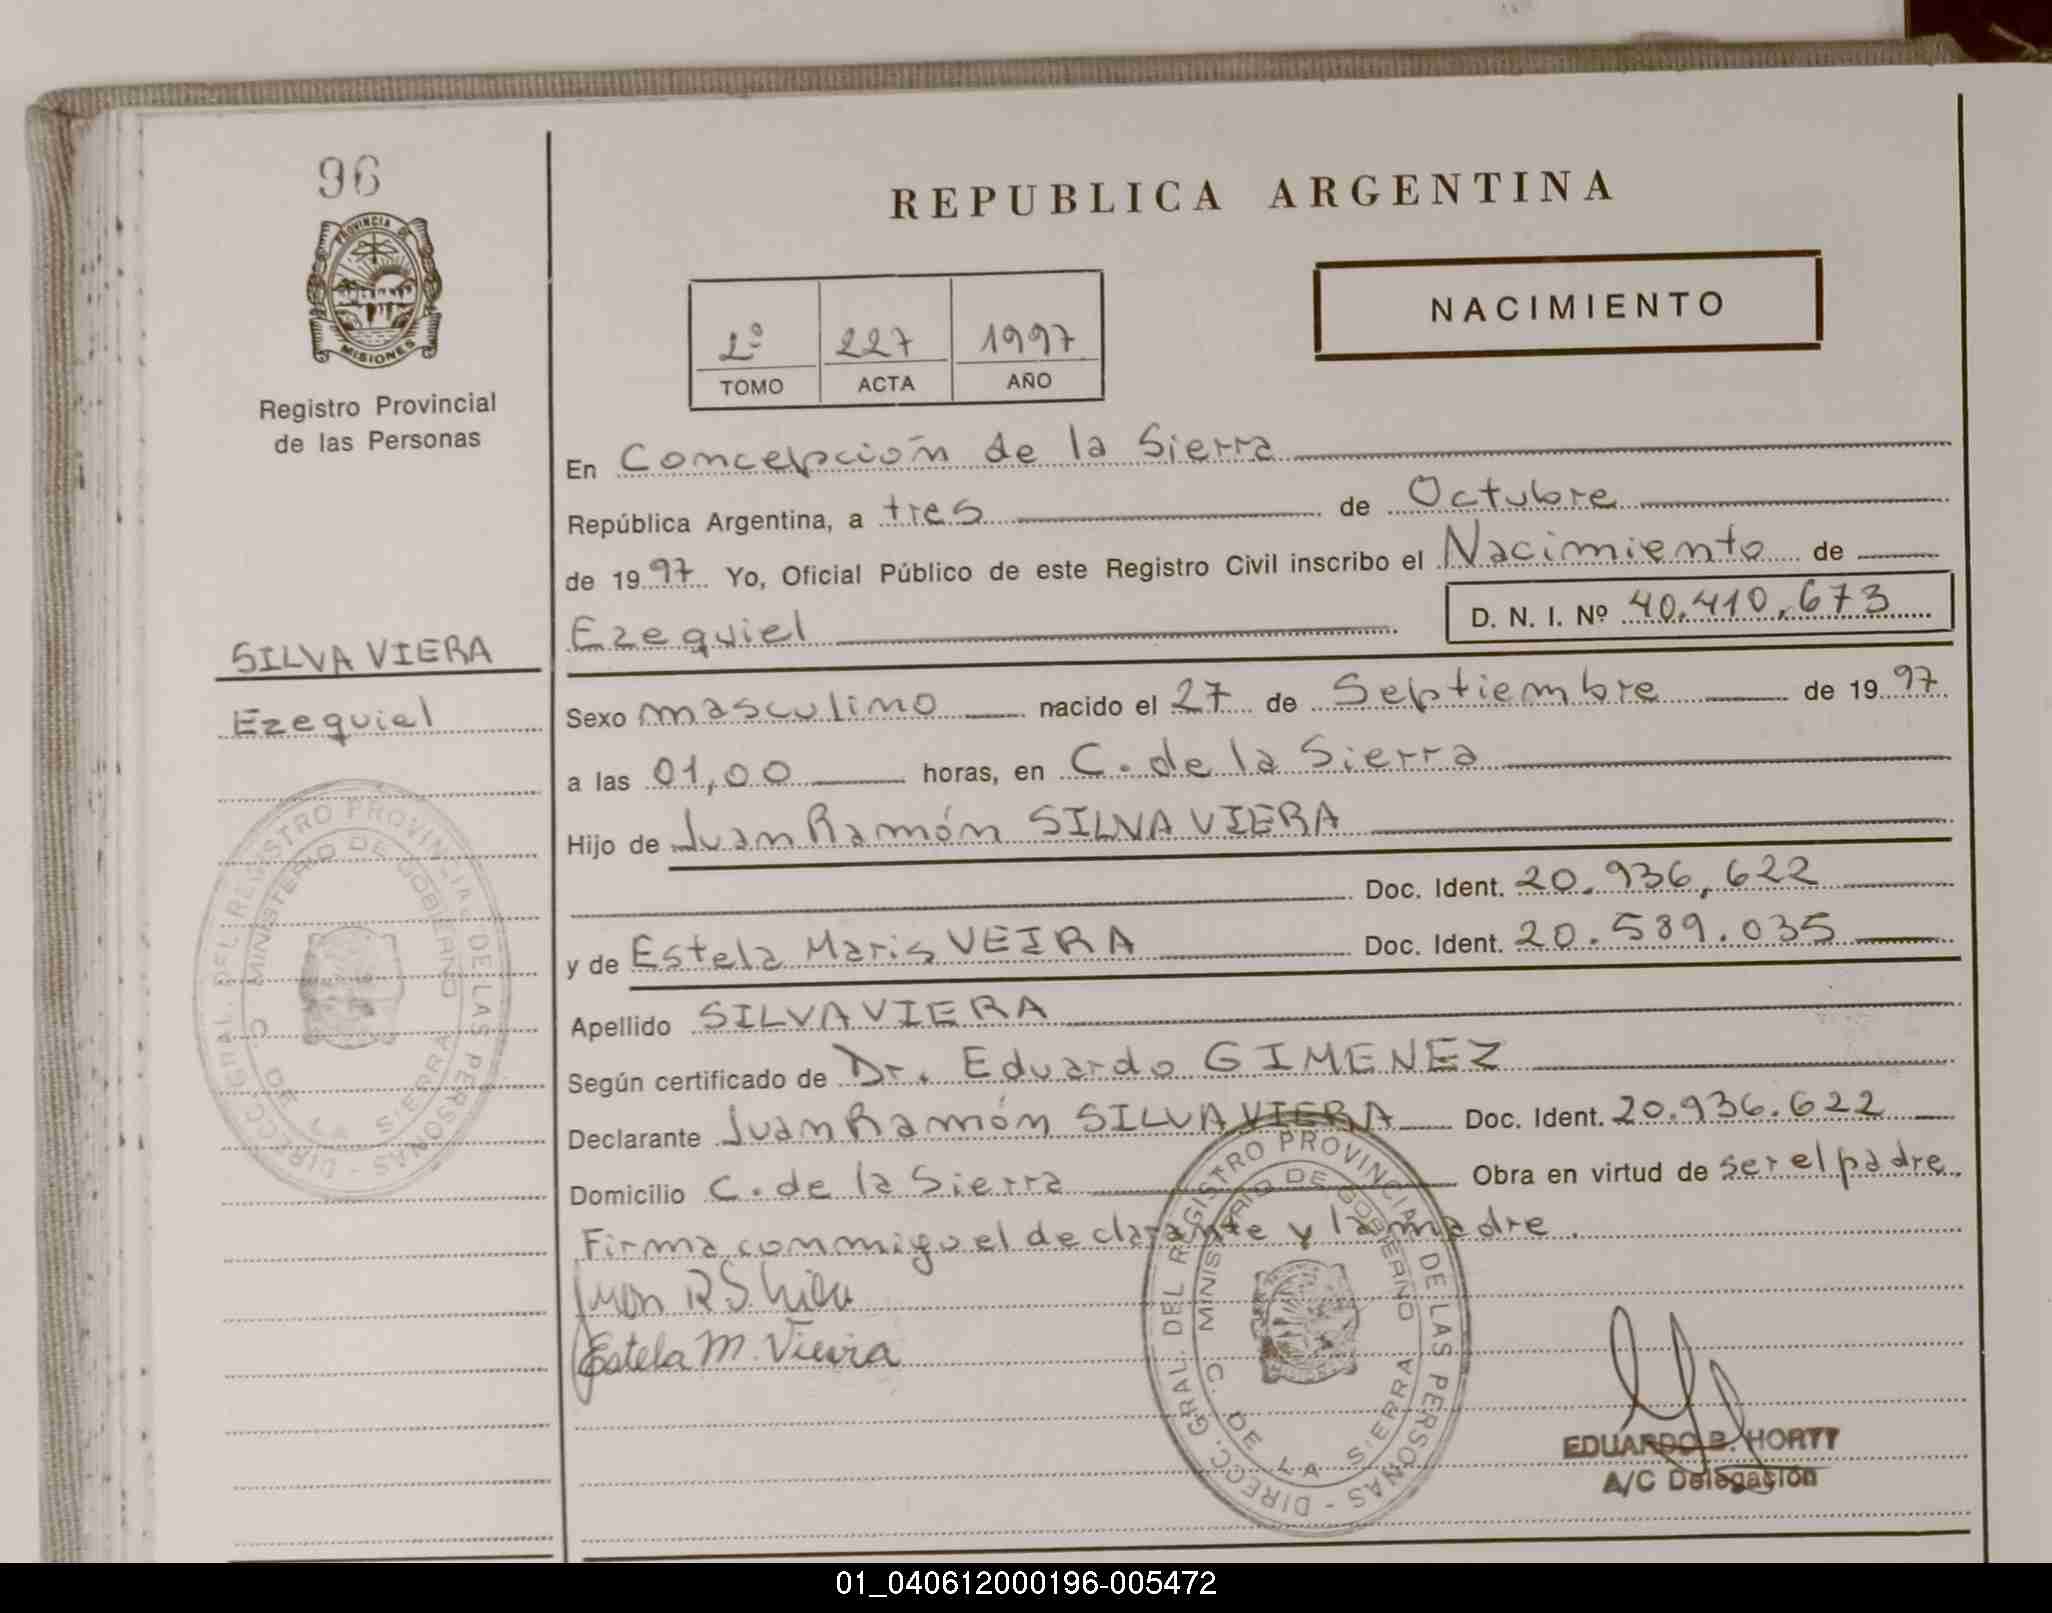 96
PROVINCIA DE
MISIONES
Registro Provincial
de las Personas
SILVA VIERA
Ezequiel
DIRECC. GRAL. DEL REGISTRO PROVINCIAL DE LAS PERSONAS -
MINISTERIO DE GOBIERNO
C. DE LA SIERRA
REPUBLICA ARGENTINA
NACIMIENTO
2º 227 1997
TOMO ACTA AÑO
En Concepción de la Sierra
República Argentina, a tres de Octubre
de 1997 Yo, Oficial Público de este Registro Civil inscribo el Nacimiento de
Ezequiel D. N. I. Nº 40.410.673
Sexo masculino nacido el 27 de Septiembre de 1997
a las 01,00 horas, en C. de la Sierra
Hijo de Juan Ramón SILVA VIERA
Doc. Ident. 20.936,622
y de Estela Maris VEIRA Doc. Ident. 20.589.035
Apellido SILVA VIERA
Según certificado de Dr. Eduardo GIMENEZ
Declarante Juan Ramón SILVA VIERA Doc. Ident. 20.936.622
Domicilio C. de la Sierra Obra en virtud de ser el padre.
Firma conmigo el declarante y la madre.
Juan R S
Estela M. Vieira
DIRECC. GRAL. DEL REGISTRO PROVINCIAL DE LAS PERSONAS -
MINISTERIO DE GOBIERNO
C. DE LA SIERRA
EDUARDO B. HORTT
A/C Delegación
01_040612000196-005472